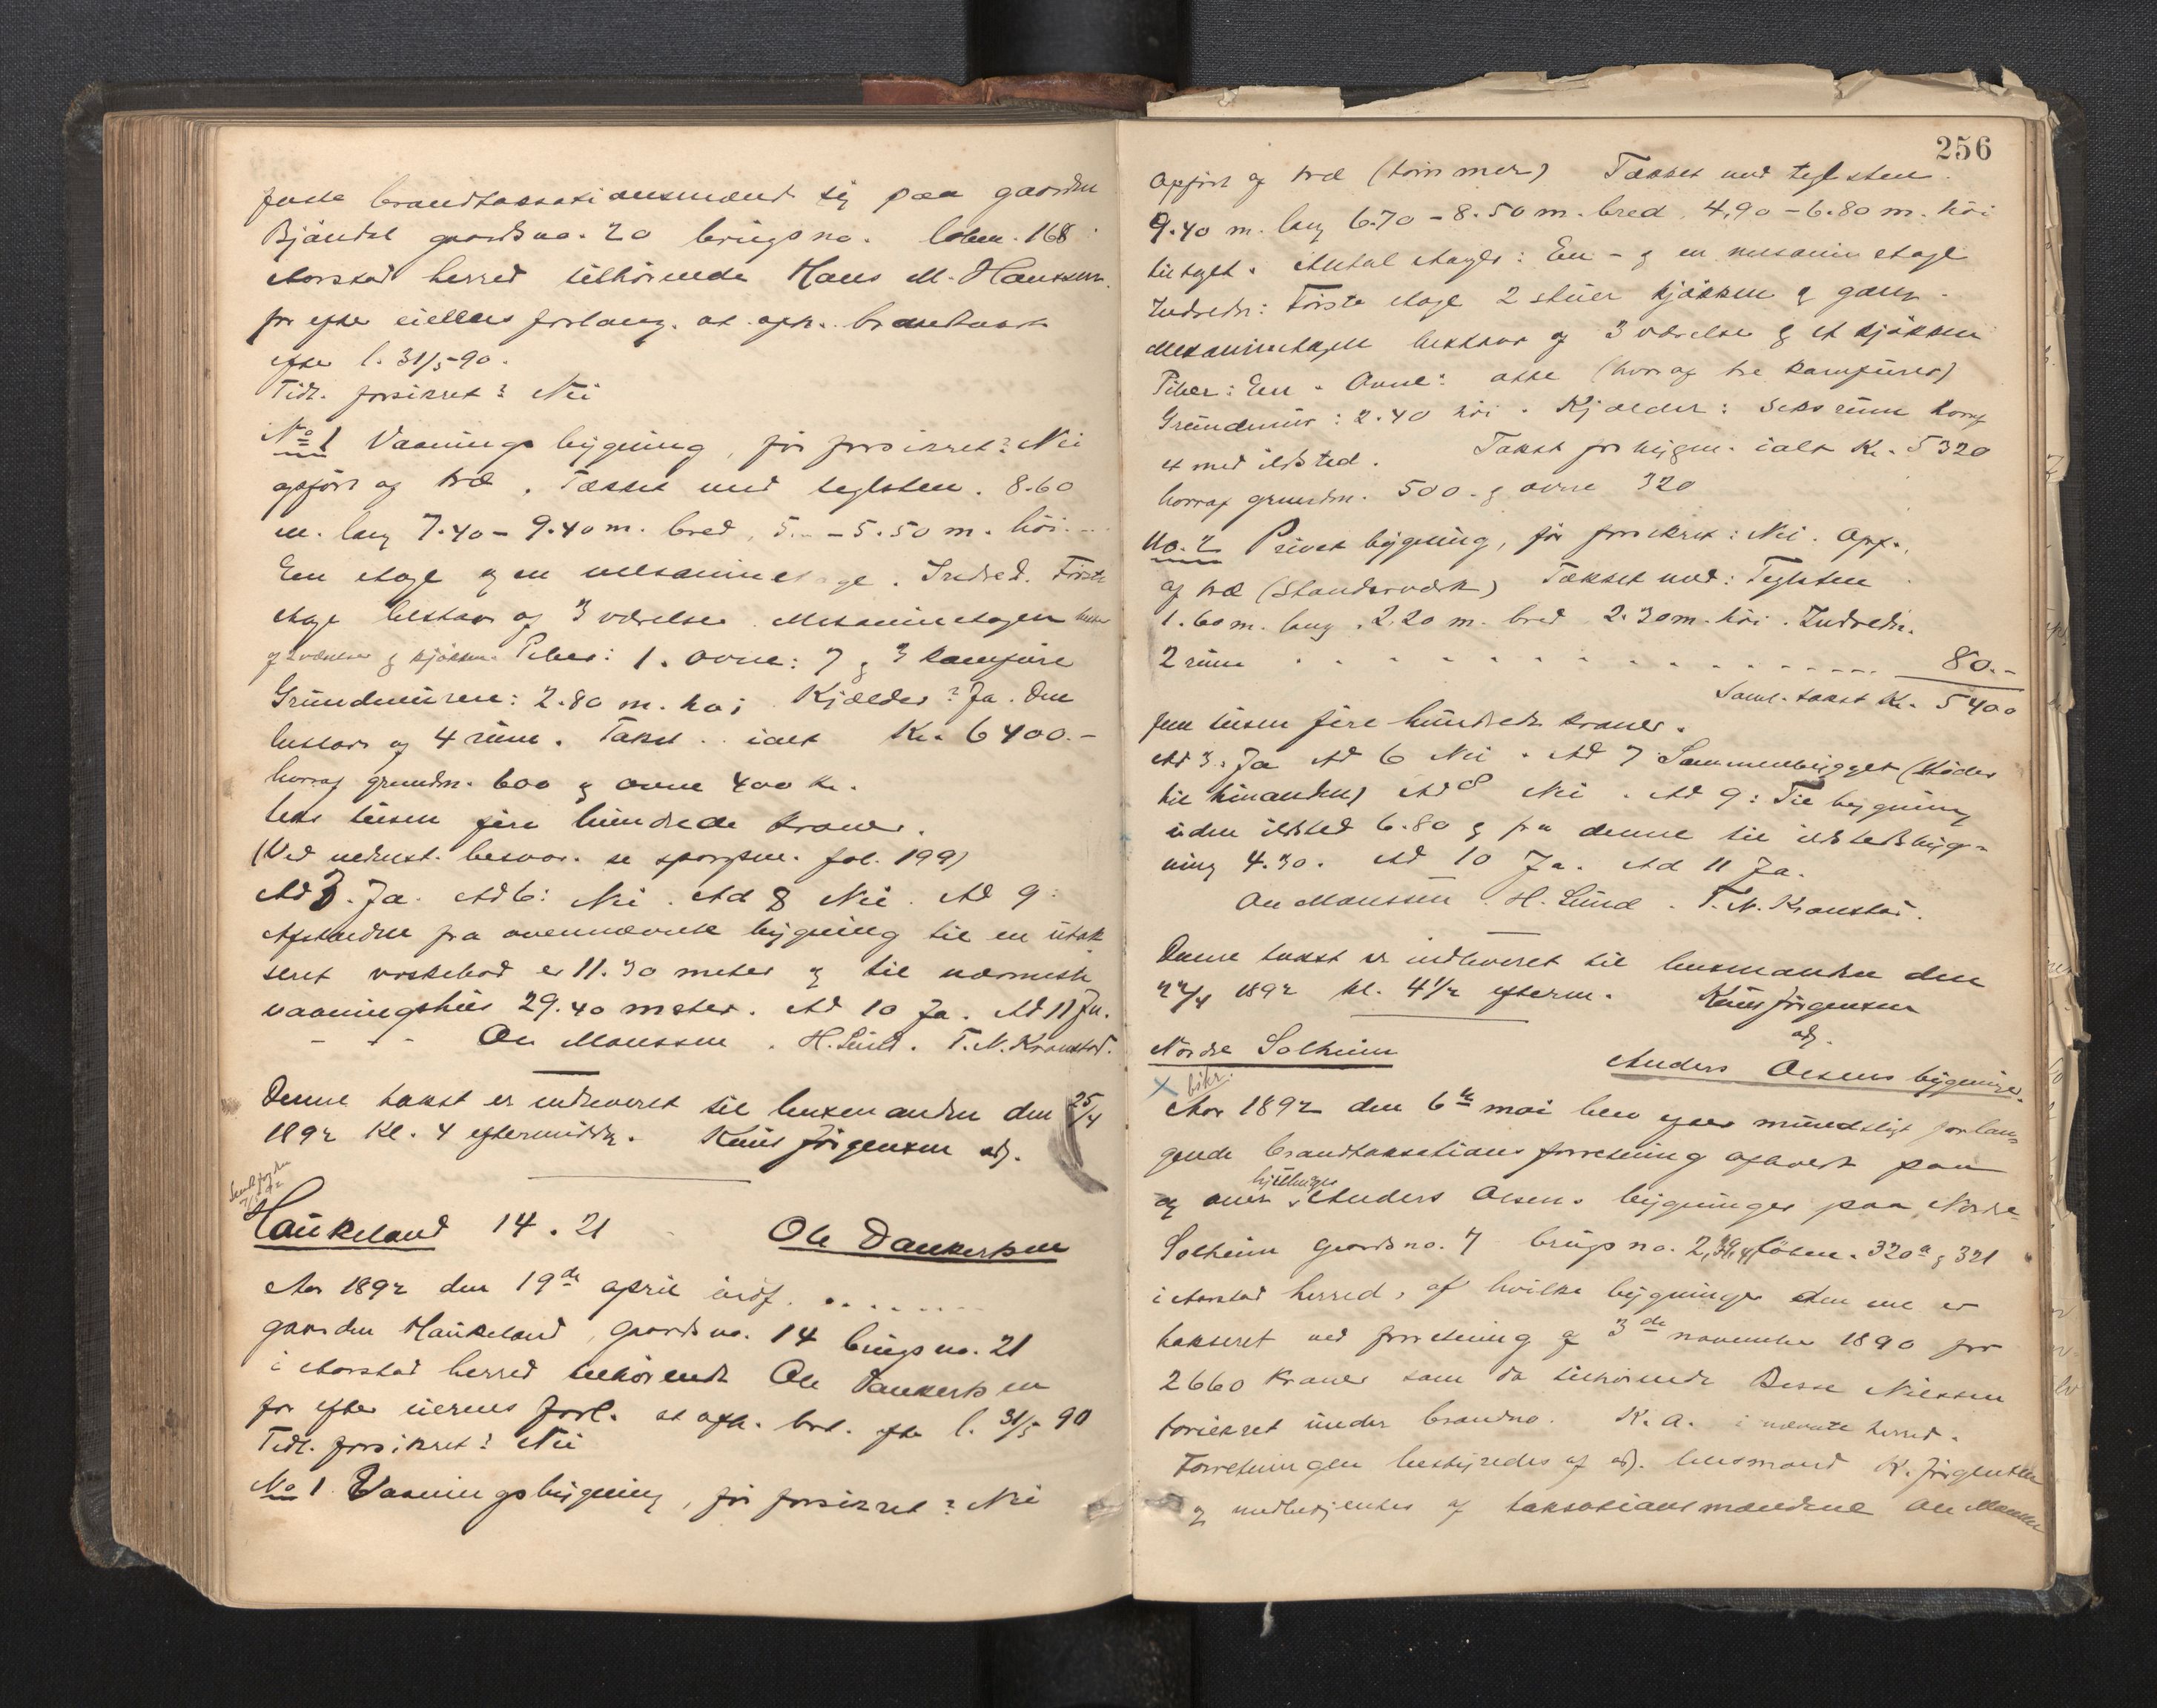 faste brandtaxationsmænd sig paa gaarden
Bjøndal gaardsno. 20 brugsno. løben. 168
Aarstad herred tilhørende Hans M. Hanssen
for efter eiellers forlang. at aph. brandtaxt
efter l. 31/5-90.
Tidl. forsikret? Nei
No 1 Vaaningsbygning, før forsikret? Nei
opført af træ. Tækket med teglsten. 8.60
m. lang 7.40 - 9.40 m. bred, 5.- - 5.50 m. høi. -
Een etage og en mesaninetage. Indred. Første
etage bestaar af 3 værelser. Mesaninetagen
af værelser & kjøkken Piber: 1. ovne: 7 & 3 komfure
Grundmuren: 2.80 m. høi Kjælder? Ja. Den
bestaar af 4 rum. Takst .. ialt Kr. 6400.-
hvoraf grundm. 600 & ovne 400 kr.
seks tusen fire hundrede kroner.
(Ved nedenst. besvar. se spørgsm. fol. 199)
Ad 3. Ja. Ad 6: Nei. Ad 8 Nei. Ad 9:
Afstanden fra ovennævnte bygning til en utak
seret vaskebod er 11.30 meter & til nærmeste
vaaningshus 29.40 meter. Ad 10 Ja. Ad 11 Ja.
- - - Ole Monssen. H. Lund. T. N. Kronstad.
Denne takst er indleveret til lensmanden den 25/4
1892 Kl. 4 eftermiddag. Knut Jørgensen adj.
Haukeland 14.21 - Ole Dankertsen
Aar 1892 den 19de april indf. . . . . . .
gaarden Haukeland, gaardsno. 14 brugsno. 21
i Aarstad herred tilhørende Ole Dankertsen
for efter eierens forl. at afh. brt. efter l. 31/5 90
Tidl. forsikret? Nei
No 1 Vaaningsbygning, før forsikret? Nei
256
Opført af træ (tømmer) Tækket med teglsten.
9.40 m. lang 6.70 - 8.50 m. bred. 4,90 - 6.80 m. høi
til taget. Antal etager: En - & en mesanin etage
Indredn: Første etage 2 stuer kjøkken & gang.
Mesaninetagen bestaar af 3 værelser & et kjøkken
Piber: En. Ovne: otte (hvoraf tre komfurer)
Grundmur: 2.40 høi. Kjælder: seks rum hvoraf
et med ildsted. Takst for bygn. ialt Kr. 5320
hvoraf grundm. 500. & ovne 320
No. 2 Privetbygning, før forsikret: Nei. Opf.
af træ (Standerværk) Tækket med: Teglsten
1.60 m. lang, 2.20 m. bred 2.30 m. høi. Indredn.
2 rum . . . . . . . . . . . . 80.-
Saml. takst Kr. 5400
fem tusen fire hundrede kroner.
Ad 3. Ja Ad 6 Nei. Ad 7 Sammenbygget (støder
til hinanden) Ad 8 Nei. Ad 9: Til bygning
uden ildsted 6.80 & fra denne til ildstedsbyg-
ning 4.30. Ad 10 Ja. Ad 11 Ja.
Ole Monssen. H. Lund. T. N. Kronstad.
Denne takst er indleveret til lensmanden den
22/4 1892 kl. 4 1/2 efterm. Knut Jørgensen
adj.
Nordre Solheim
Anders Olsens bygninger.
bskr.
Aar 1892 den 6te mai blev efter mundtligt forlan-
gende brandtaksationsforretning afholdt paa
og over Anders Olsens bygninger paa Nordre
Solheim gaardsno. 7 brugsno. 2, 39, 41, løben. 320a & 321
i Aarstad herred, af hvilke bygninger den ene er
takseret ved forretning af 3de november 1890 for
2660 Kroner som da tilhørende Besse Nilssen
forsikret under brandno. K. a. i nævnte herred.
Forretningen bestyredes af adj. lensmand K. Jørgensen
og medbetjentes af taksationsmændene Ole Monssen